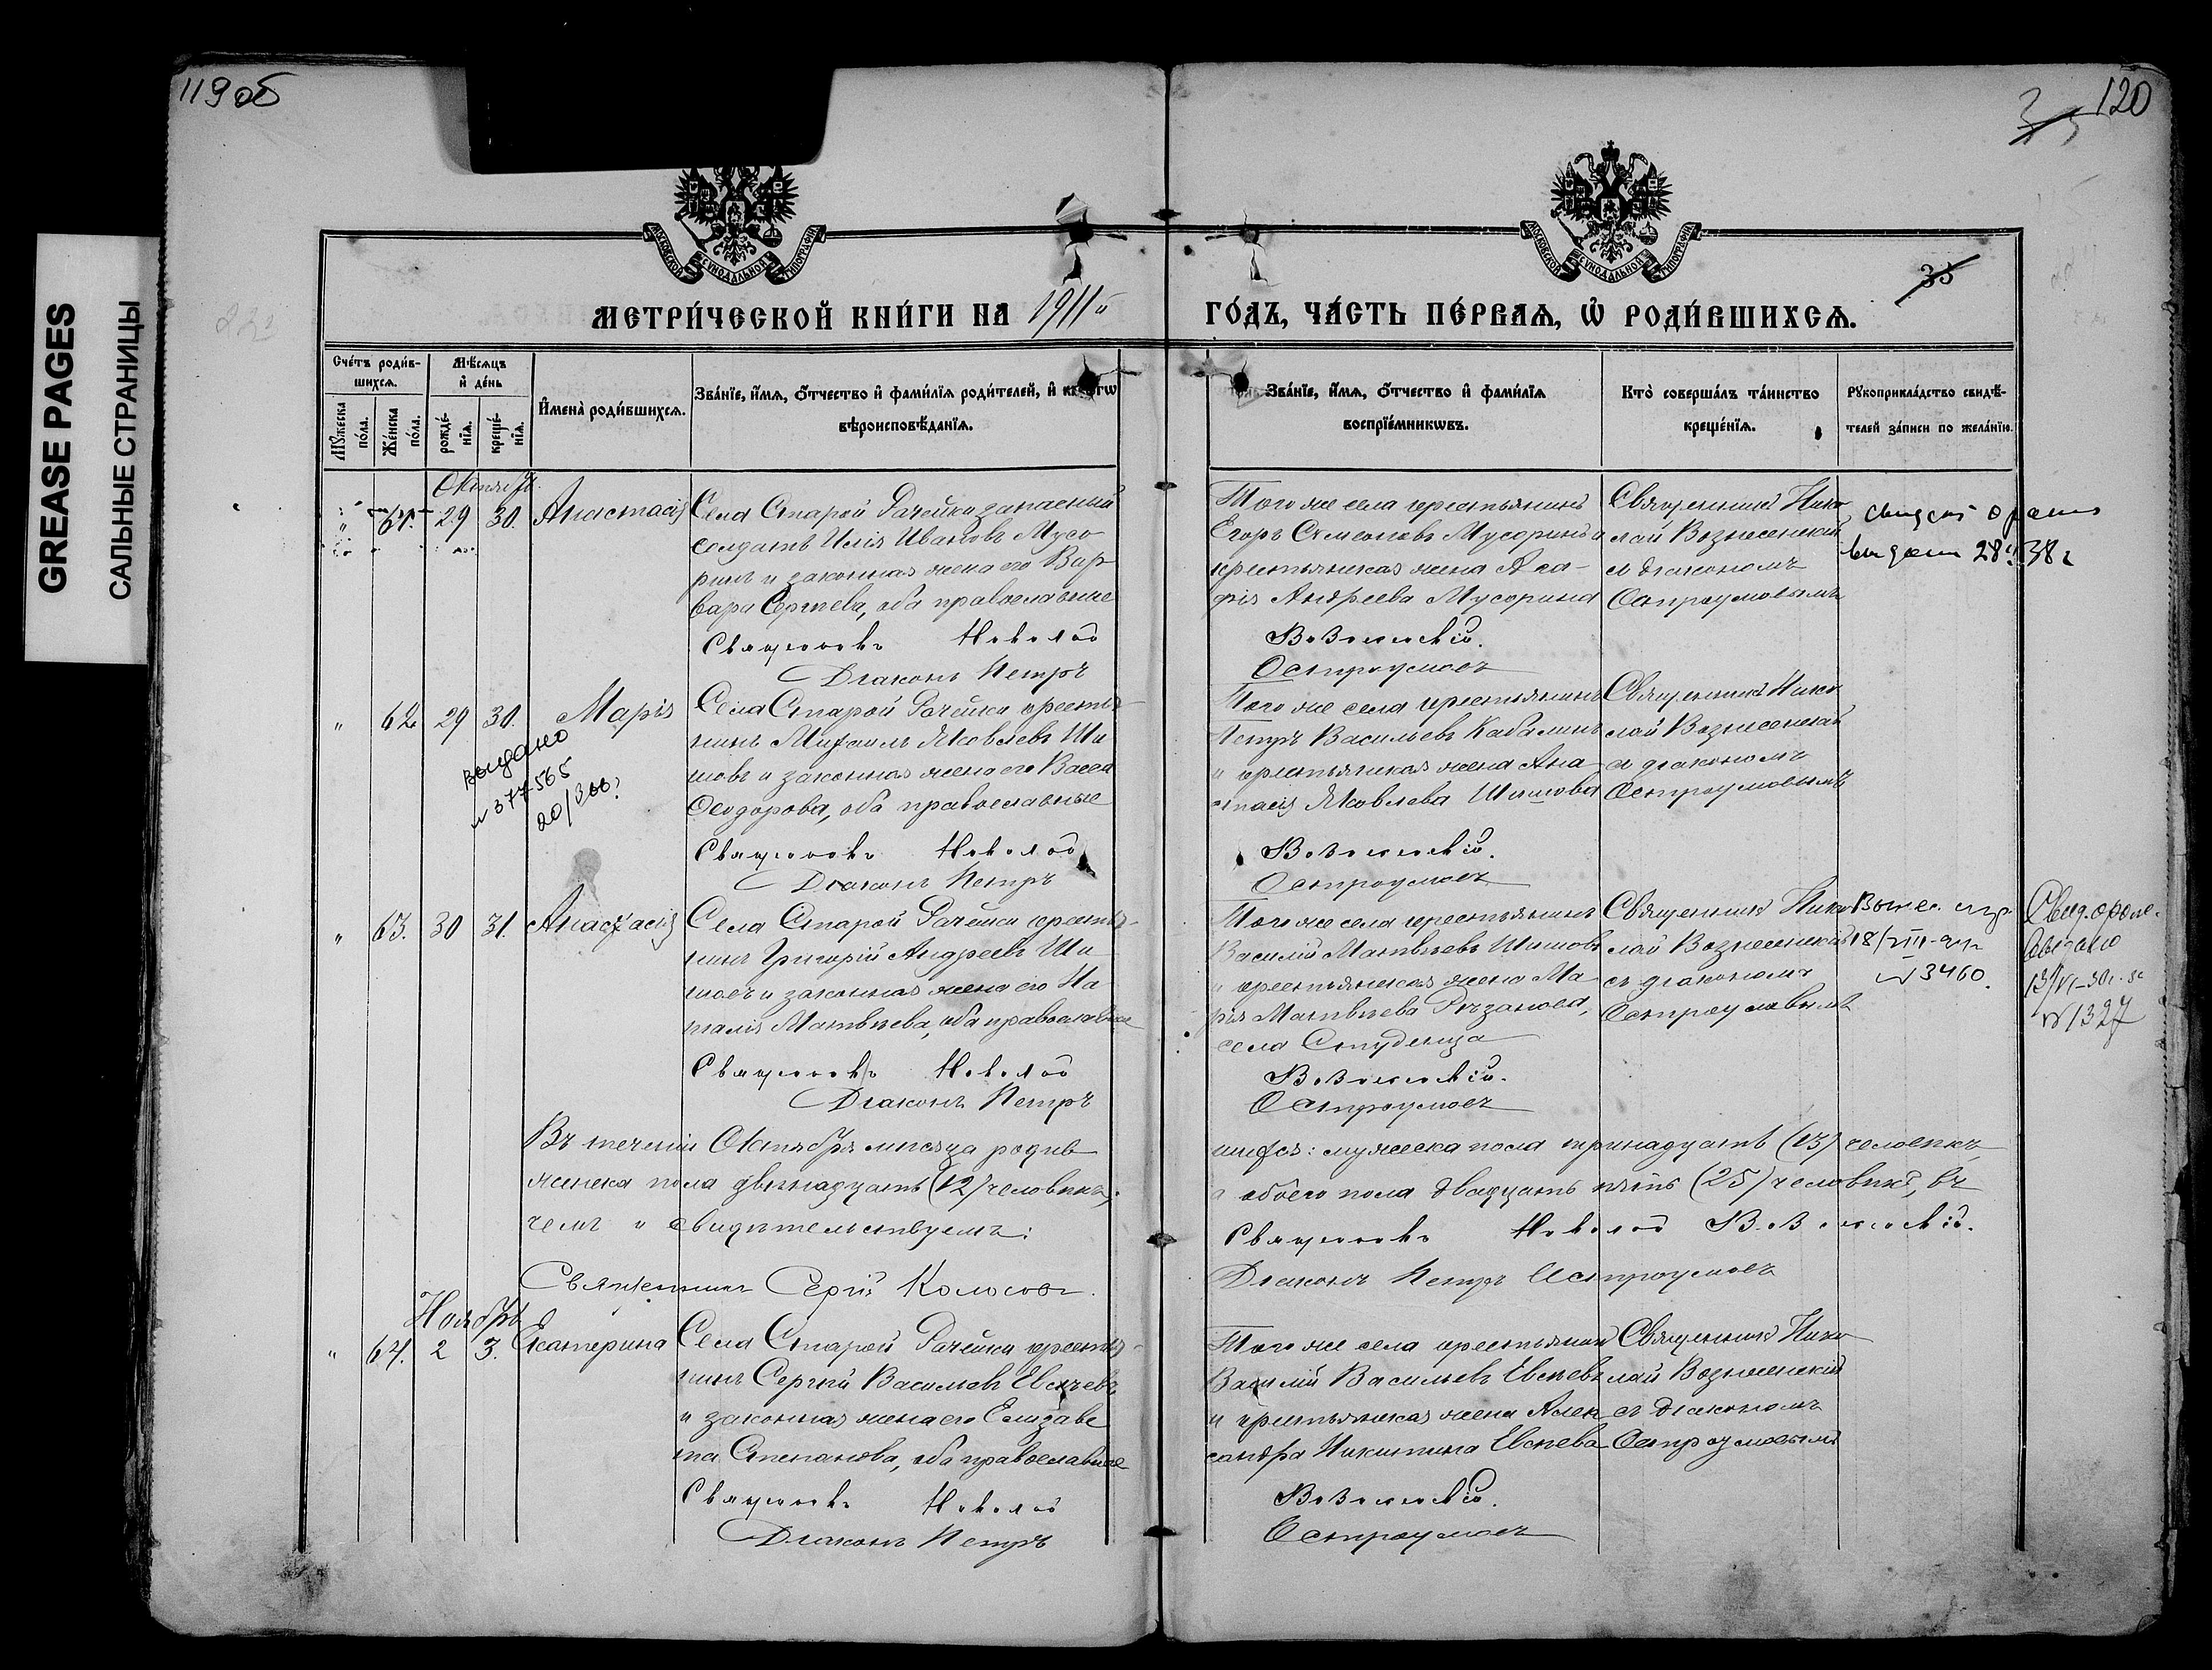 GREASE PAGES
САЛЬНЫЕ СТРАНИЦЫ
119 об
120
МОСКОВСКОЙ СѴНОДАЛЬНОЙ ТИПОГРАФІИ
МОСКОВСКОЙ СѴНОДАЛЬНОЙ ТИПОГРАФІИ
35
МЕТРИ́ЧЕСКОЙ КНИ́ГИ НА 1911й
ГО́ДЪ, ЧА́СТЬ ПЕ́РВАЯ, Ѿ РОДИ́ВШИХСЯ.
Сче́тъ роди́вшихся.
Мꙋ́жеска по́ла.
Же́нска по́ла.
Мѣ́сяцъ и҆ де́нь
рожде́нїя.
креще́нїя.
И҆мена̀ роди́вшихся.
Зва́нїе, и҆́мя, ѻ҆́тчество и҆ фами́лїя роди́телей, и҆
вѣроисповѣ́данїя.
Зва́нїе, и҆́мя, ѻ҆́тчество и҆ фами́лїя
воспрїе́мникѡвъ.
Кто̀ соверша́лъ та́инство
креще́нїя.
Рꙋкоприкла́дство свидѣ́-
телей за́писи по жела́нїю.
Октябрь
61. 29 30. Анастасія
Села Старой Рачейки запасный
солдатъ Илія Ивановъ Мусо
ринъ и законная жена его Вар
вара Сергѣева, оба православные
Священникъ Николай
Діаконъ Петръ
Того же села крестьянинъ
Егоръ Симеоновъ Мусоринъ и
крестьянская жена Ага-
фія Андреева Мусорина
Вознесенскій.
Остроумовъ
Священникъ Нико
лай Вознесенскій
съ діакономъ
Остроумовымъ
" 62 29 30. Марія
выдано
20/
Села Старой Рачейки крестья-
нинъ Михаилъ Яковлевъ Ши
шовъ и законная жена его Васса
Ѳеодорова, оба православные
Священникъ Николай
Діаконъ Петръ
Того же села крестьянинъ
Петръ Васильевъ Кабалинъ
и крестьянская жена Ана-
стасія Яковлева Шишова
Вознесенскій.
Остроумовъ
Священникъ Нико
лай Вознесенскій
съ діакономъ
Остроумовымъ
" 63. 30 31. Анастасія
Села Старой Рачейки крестья-
нинъ Григорій Андреевъ Ши-
шовъ и законная жена его На
талія Матвѣева, оба православные
Священникъ Николай
Діаконъ Петръ
Того же села крестьянинъ
Василій Матвѣевъ Шишовъ
и крестьянская жена Ма-
рія Матвѣева Рѣзанова,
села Студенца
Вознесенскій.
Остроумовъ
Священникъ Нико
лай Вознесенскій
съ діакономъ
Остроумовымъ
№ 3460.
выдано
№ 1327
Въ теченіи Октября мѣсяца родив
шихся: мужеска пола тринадцать (13) человѣкъ,
женска пола двѣнадцать (12) человѣкъ,
а обоего пола двадцать пять (25) человѣкъ, въ
чемъ и свидѣтельствуемъ:
Священникъ Николай Вознесенскій.
Священникъ Сергій Колосовъ.
Діаконъ Петръ Остроумовъ
Ноябрь
" 64. 2 3. Екатерина
Села Старой Рачейки крестья-
нинъ Сергѣй Васильевъ Евсѣевъ
и законная жена его Елизаве
та Степанова, оба православные
Священникъ Николай
Діаконъ Петръ
Того же села крестьянинъ
Василій Васильевъ Евсѣевъ
и крестьянская жена Алек
сандра Никитина Евсѣева
Вознесенскій.
Остроумовъ
Священникъ Нико
лай Вознесенскій
съ діакономъ
Остроумовымъ